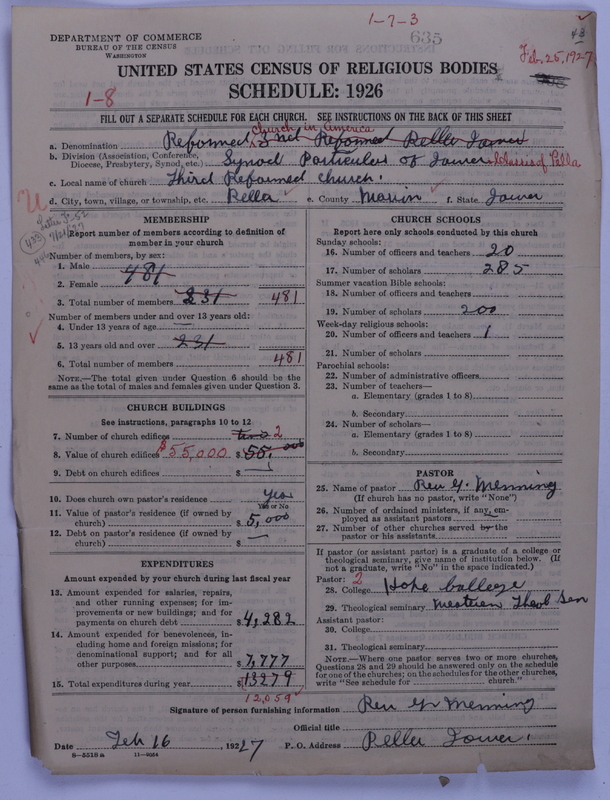 1-7-3
635
43
DEPARTMENT OF COMMERCE
BUREAU OF THE CENSUS
WASHINGTON
Feb. 25, 1927
UNITED STATES CENSUS OF RELIGIOUS BODIES
SCHEDULE: 1926
1-8
FILL OUT A SEPARATE SCHEDULE FOR EACH CHURCH. SEE INSTRUCTIONS ON THE BACK OF THIS SHEET
Church in America
a. Denomination Reformed
b. Division (Association, Conference, Diocese, Presbytery, Synod, etc.) Synod Particular of Iowa Classis of Pella
c. Local name of church Third Reformed Church.
d. City, town, village, or township, etc. Pella e. County Marion f. State Iowa
MEMBERSHIP
Report number of members according to definition of member in your church
Number of members, by sex:
1. Male
481
2. Female
3. Total number of members 231 481
Number of members under and over 13 years old:
4. Under 13 years of age
5. 13 years old and over 231
6. Total number of members 481
NOTE.—The total given under Question 6 should be the same as the total of males and females given under Question 3.
CHURCH BUILDINGS
See instructions, paragraphs 10 to 12
7. Number of church edifices two 2
8. Value of church edifices $55,000 $55,000
9. Debt on church edifices
10. Does church own pastor's residence Yes
Yes or No
11. Value of pastor's residence (if owned by church) $5,000
12. Debt on pastor's residence (if owned by church) $ —
EXPENDITURES
Amount expended by your church during last fiscal year
13. Amount expended for salaries, repairs, and other running expenses; for improvements or new buildings; and for payments on church debt $4,282
14. Amount expended for benevolences, including home and foreign missions; for denominational support; and for all other purposes $7,777
15. Total expenditures during year $13279
12,059
CHURCH SCHOOLS
Report here only schools conducted by this church
Sunday schools:
16. Number of officers and teachers 20
17. Number of scholars 285
Summer vacation Bible schools:
18. Number of officers and teachers
19. Number of scholars 200
Week-day religious schools:
20. Number of officers and teachers 1
21. Number of scholars
Parochial schools:
22. Number of administrative officers
23. Number of teachers—
a. Elementary (grades 1 to 8)
b. Secondary
24. Number of scholars—
a. Elementary (grades 1 to 8)
b. Secondary
PASTOR
25. Name of pastor Rev G. Menning
(If church has no pastor, write "None")
26. Number of ordained ministers, if any, employed as assistant pastors
27. Number of other churches served by the pastor or his assistants
If pastor (or assistant pastor) is a graduate of a college or theological seminary, give name of institution below. (If not a graduate, write "No" in the space indicated.)
Pastor: 2
28. College Hope College
29. Theological seminary Western Theol Sem
Assistant pastor:
30. College
31. Theological seminary
NOTE.—Where one pastor serves two or more churches, Questions 28 and 29 should be answered only on the schedule for one of the churches; on the schedules for the other churches, write "See schedule for ... church."
Signature of person furnishing information Rev G Menning
Official title
Date Feb 16, 19227 P. O. Address Pella Iowa.
8—5518a 11—9054